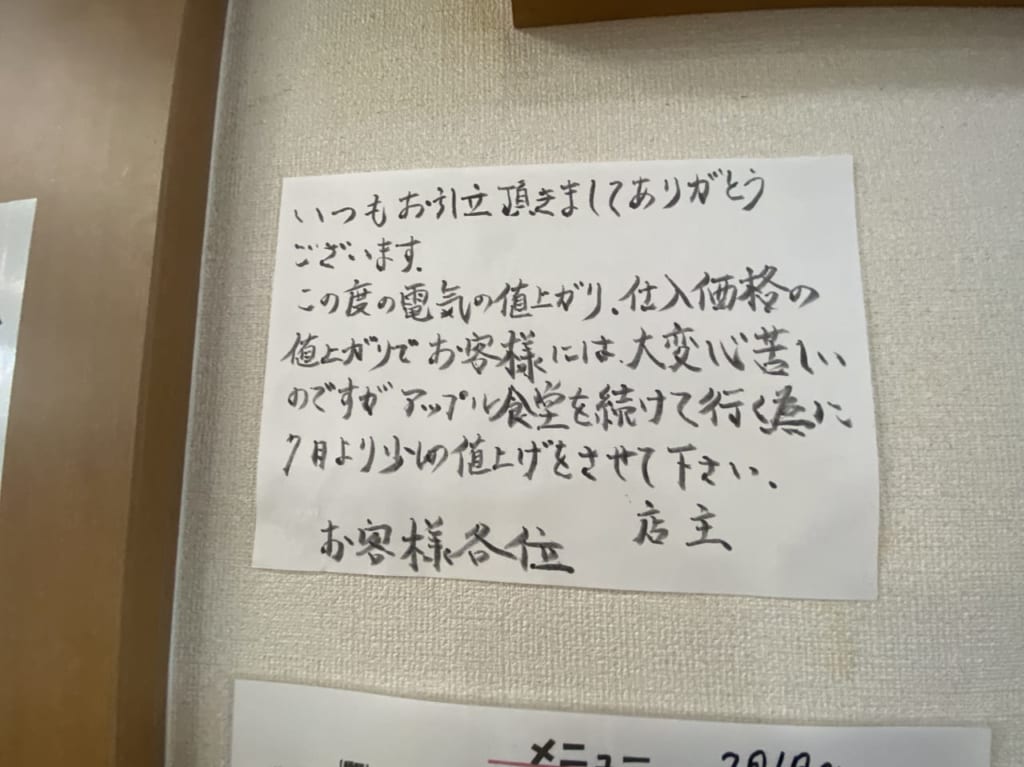 いつもお引立頂きましてありがとう
ございます。
この度の電気の値上がり、仕入価格の
値上がりでお客様には、大変心苦しい
のですがアップル食堂を続けて行く為に
7月より少しの値上げをさせて下さい。
店主
お客様各位
メニュー